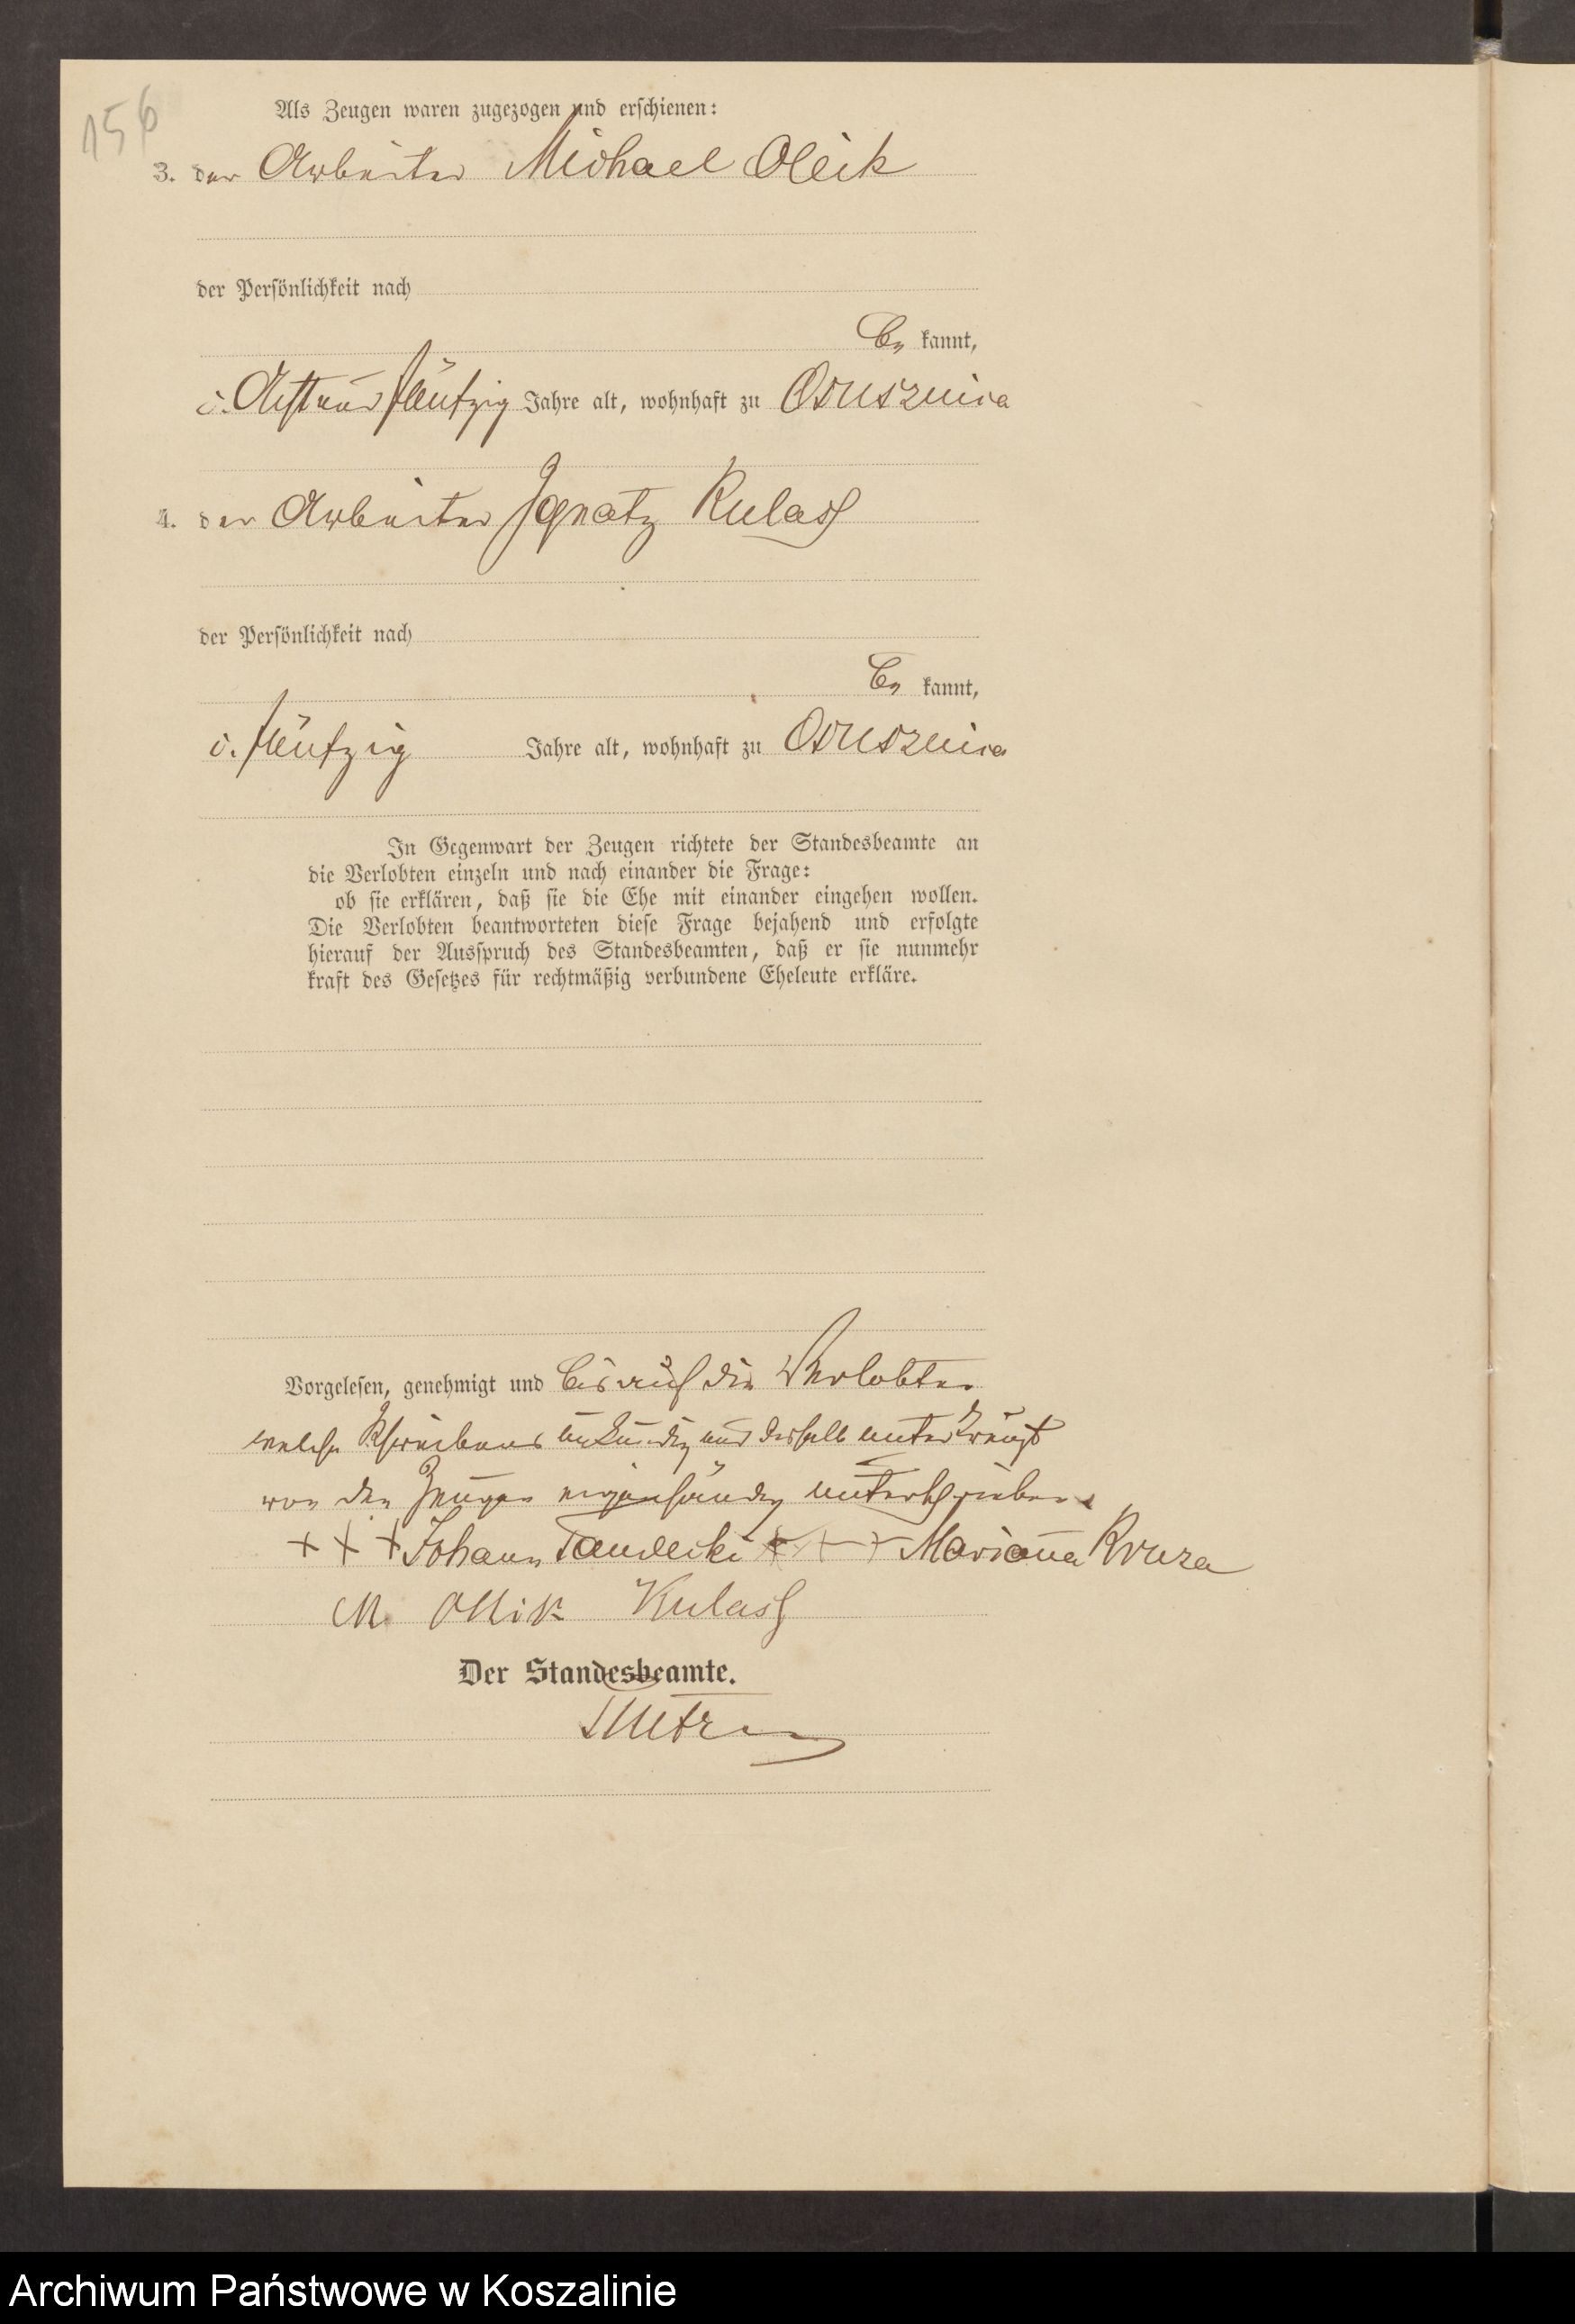 156
Als Zeugen waren zugezogen und erschienen:
3. der Arbeiter Michael Oleik
der Persönlichkeit nach
be kannt,
Acht und fünfzig Jahre alt, wohnhaft zu Ossusznica
4. der Arbeiter Ignatz Kulass
der Persönlichkeit nach
be kannt,
fünfzig Jahre alt, wohnhaft zu Ossusznica
In Gegenwart der Zeugen richtete der Standesbeamte an
die Verlobten einzeln und nach einander die Frage:
ob sie erklären, daß sie die Ehe mit einander eingehen wollen.
Die Verlobten beantworteten diese Frage bejahend und erfolgte
hierauf der Ausspruch des Standesbeamten, daß er sie nunmehr
kraft des Gesetzes für rechtmäßig verbundene Eheleute erkläre.
Vorgelesen, genehmigt und bis auf die Verlobten
welche Schreibens unkundig und deshalb unterkreuzt
von den Zeugen eigenhändig unterschrieben
+ + + Johann Tandecki + + + Marianna
M Ollik Kulass
Der Standesbeamte.
Archiwum Państwowe w Koszalinie